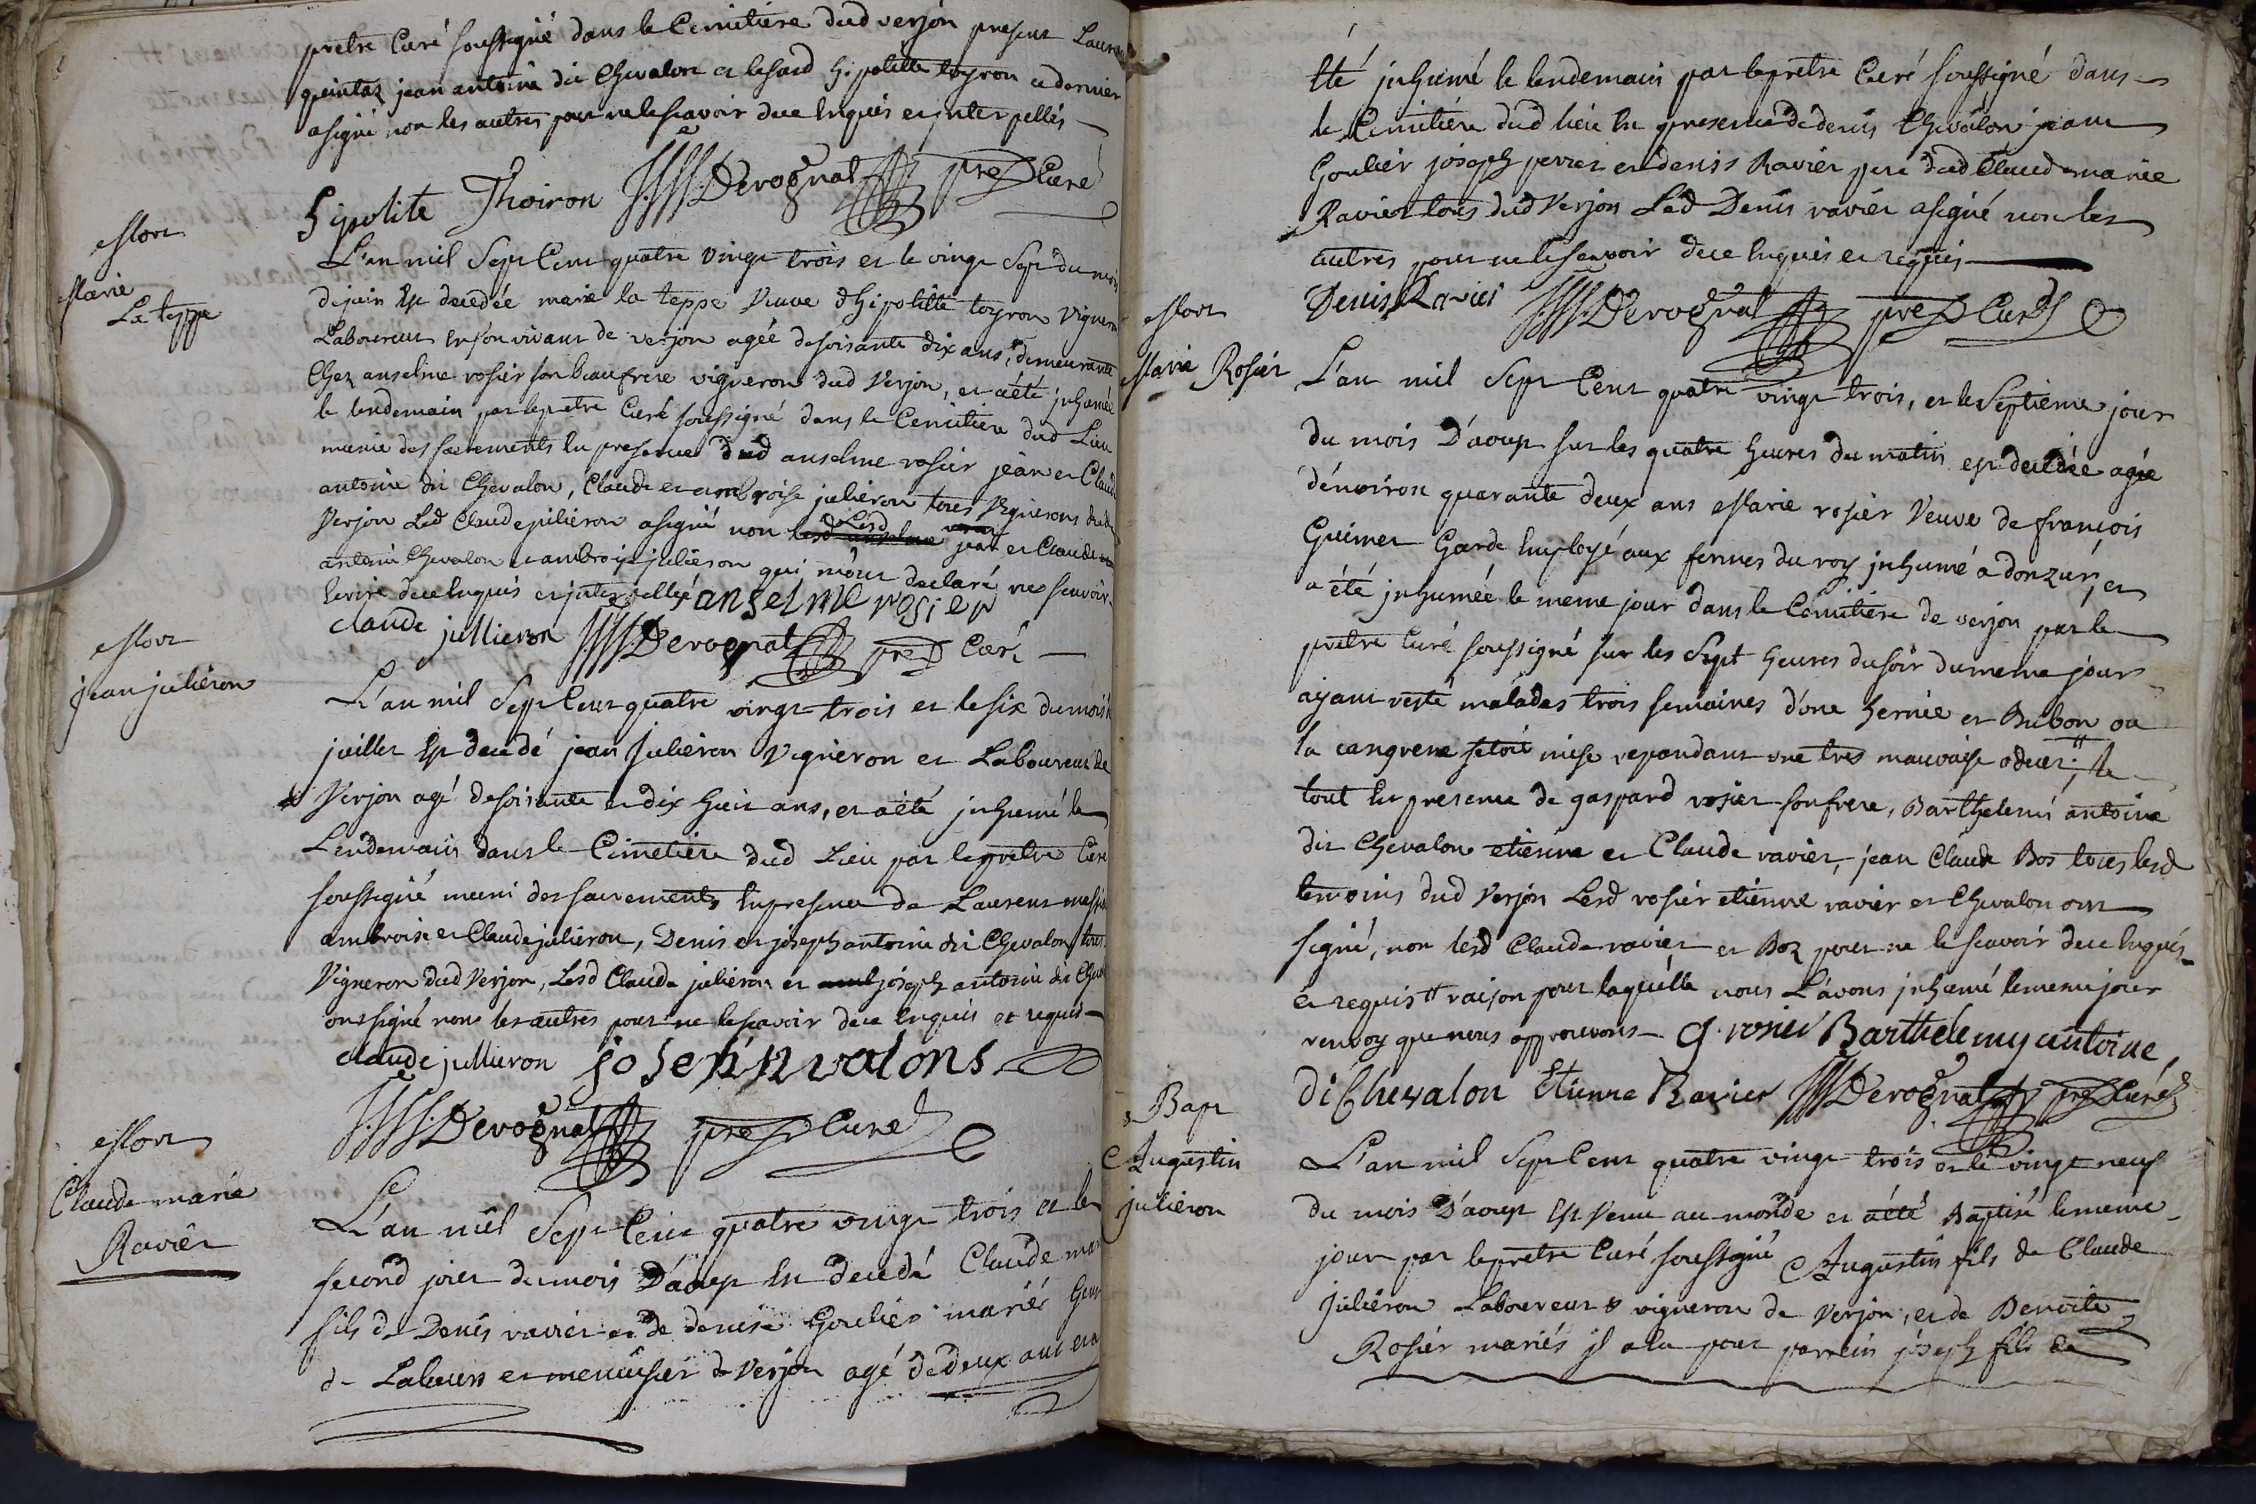 prêtre Curé soussigné dans le Cemitiere dud verjon presens Laurent
quintaz jean antoine dit Chevalon et lesusd hipolitte toyron ce dernier
a signé non les autres pour ne le scavoir de ce Enquis et jnterpellés
hipolite Thoiron Derognat pre Curé
Mort
Marie
La teppe
L'an mil Sept Cent quatre vingt trois et le vingt Sept du mois
de juin Est decedée marie la teppe Veuve d'hipolitte toyron vigneron
Laboureur en son vivant de verjon agée de soisante dix ans, demeurante
Chez anselme rosier son beaufrere vigneron dud Verjon, et a été jnhumée
le lendemain par le pretre Curé soussigné dans le Cemitiere dud Lieu
munie des sacrements En presence dud anselme rosier jean et Claude
antoine dit Chevalon, Claude et ambroise julieron tous Vignerons dud
Verjon Led Claude julieron a signé non Lesd jean et Claude
antoine Chevalon et ambroise julieron qui m'ont declaré ne scavoir
Ecrire de ce Enquis et jnterpellé anselme rosier
claude jullieron Derognat pre Curé
Mort
jean juliéron
L'an mil Sept Cent quatre vingt trois et le six du mois de
juillet Est decedé jean Julieron Vigneron et Laboureur de
Verjon agé de soisante et dix huit ans, et a été jnhumé le
Lendemain dans le Cimetiere dud Lieu par le prêtre Curé
soussigné muni des sacrements En presence de Laurent
ambroise et Claude julieron, Denis et joseph antoine dit Chevalon tous
Vigneron dud Verjon, Lesd Claude julieron et joseph antoine dit Cheva
ont signé non les autres pour ne le scavoir de ce Enquis et requis
claude jullieron joseh valons
Derognat pre Curé
Mort
Claude marie
Ravier
L'an mil Sept Cent quatre vingt trois et le
second jour du mois D'aoust Est decedé Claude marie
fils de Denis ravier et de denise Goulier mariés
de Labeurs et menuisier de Verjon agé de deux ans et a
été jnhumé le lendemain par le prêtre Curé soussigné dans
le Cemitiére dud lieu En presence de denis Chevalon jean
Goulier joseph perret et denis Ravier pere dud Claude marie
Ravier tous dud Verjon Led Denis ravier a signé non les
autres pour ne le scavoir de ce Enquis et requis
Denis Ravier Derognat pre Curé
Mort
Marie Rosier
L'an mil Sept Cent quatre vingt trois, et le Septieme jour
du mois D'aoust sur les quatre heures du matin est decedée agée
d'environ quarante deux ans Marie rosier Veuve de francois
Guimet Garde Employé aux fermes du roy jnhumé a donzur, et
a été jnhumée le meme jour dans le Cémitiére de verjon par le
prêtre Curé soussigné sur les Sept heures du soir du meme jour
ayant resté malades trois semaines d'une hernie et Bubon ou
la cangrene s'étoit mise repandant une tres mauvaise odeur; # le
tout En presence de gaspard rosier son frere, Barthelemi antoine
dit Chevalon etienne et Claude ravier, jean Claude Bos tous lesd
temoins dud Verjon Lesd rosier etienne ravier et Chevalon ont
signé, non lesd Claude ravier et Boz pour ne le scavoir de ce Enquis
et requis # raison pour laquélle nous L'avons jnhumé le meme jour
renvoy que nous approuvons G. rosier Barthelemy antoine
di Chevalon Etienne Ravier Derognat pre Curé
Bapt
Augustin
juliéron
L'an mil Sept Cent quatre vingt trois et le vingt neuf
du mois D'aoust Est Venu au monde et a été Baptisé le meme
jour par le prêtre Curé soussigné Augustin fils de Claude
Juliéron Laboureur & vigneron de Verjon, et de Benoite
Rosiér mariés jl a Eu pour parrein joseph fils de